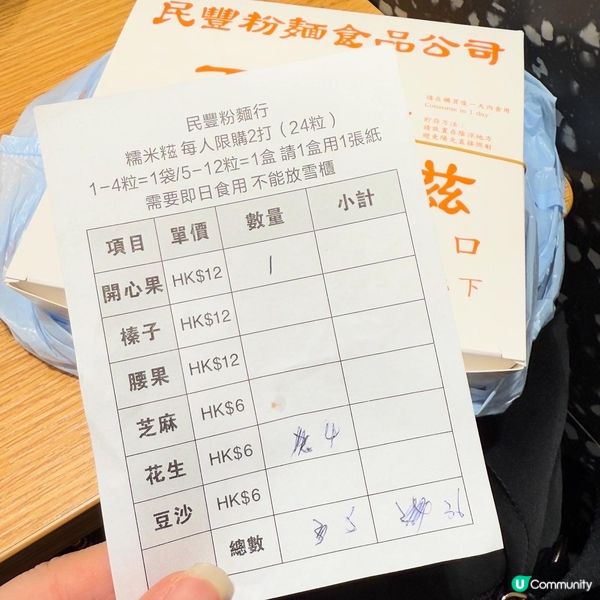 民豐粉麵食品公司
請在購買後一天內食用
Consume in 1 day
貯存方法：
請放置在陰涼地方
避免陽光直接照射
玆
口
下
民豐粉麵行
糯米糍 每人限購2打（24粒）
1-4粒=1袋/5-12粒=1盒 請1盒用1張紙
需要即日食用 不能放雪櫃
項目 單價 數量 小計
開心果 HK$12 1
榛子 HK$12
腰果 HK$12
芝麻 HK$6
花生 HK$6 4
豆沙 HK$6
總數 5 36
U Community